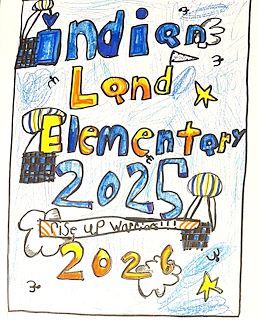 indian
Land
Elementary
2025
rise up warriors!!!
2026